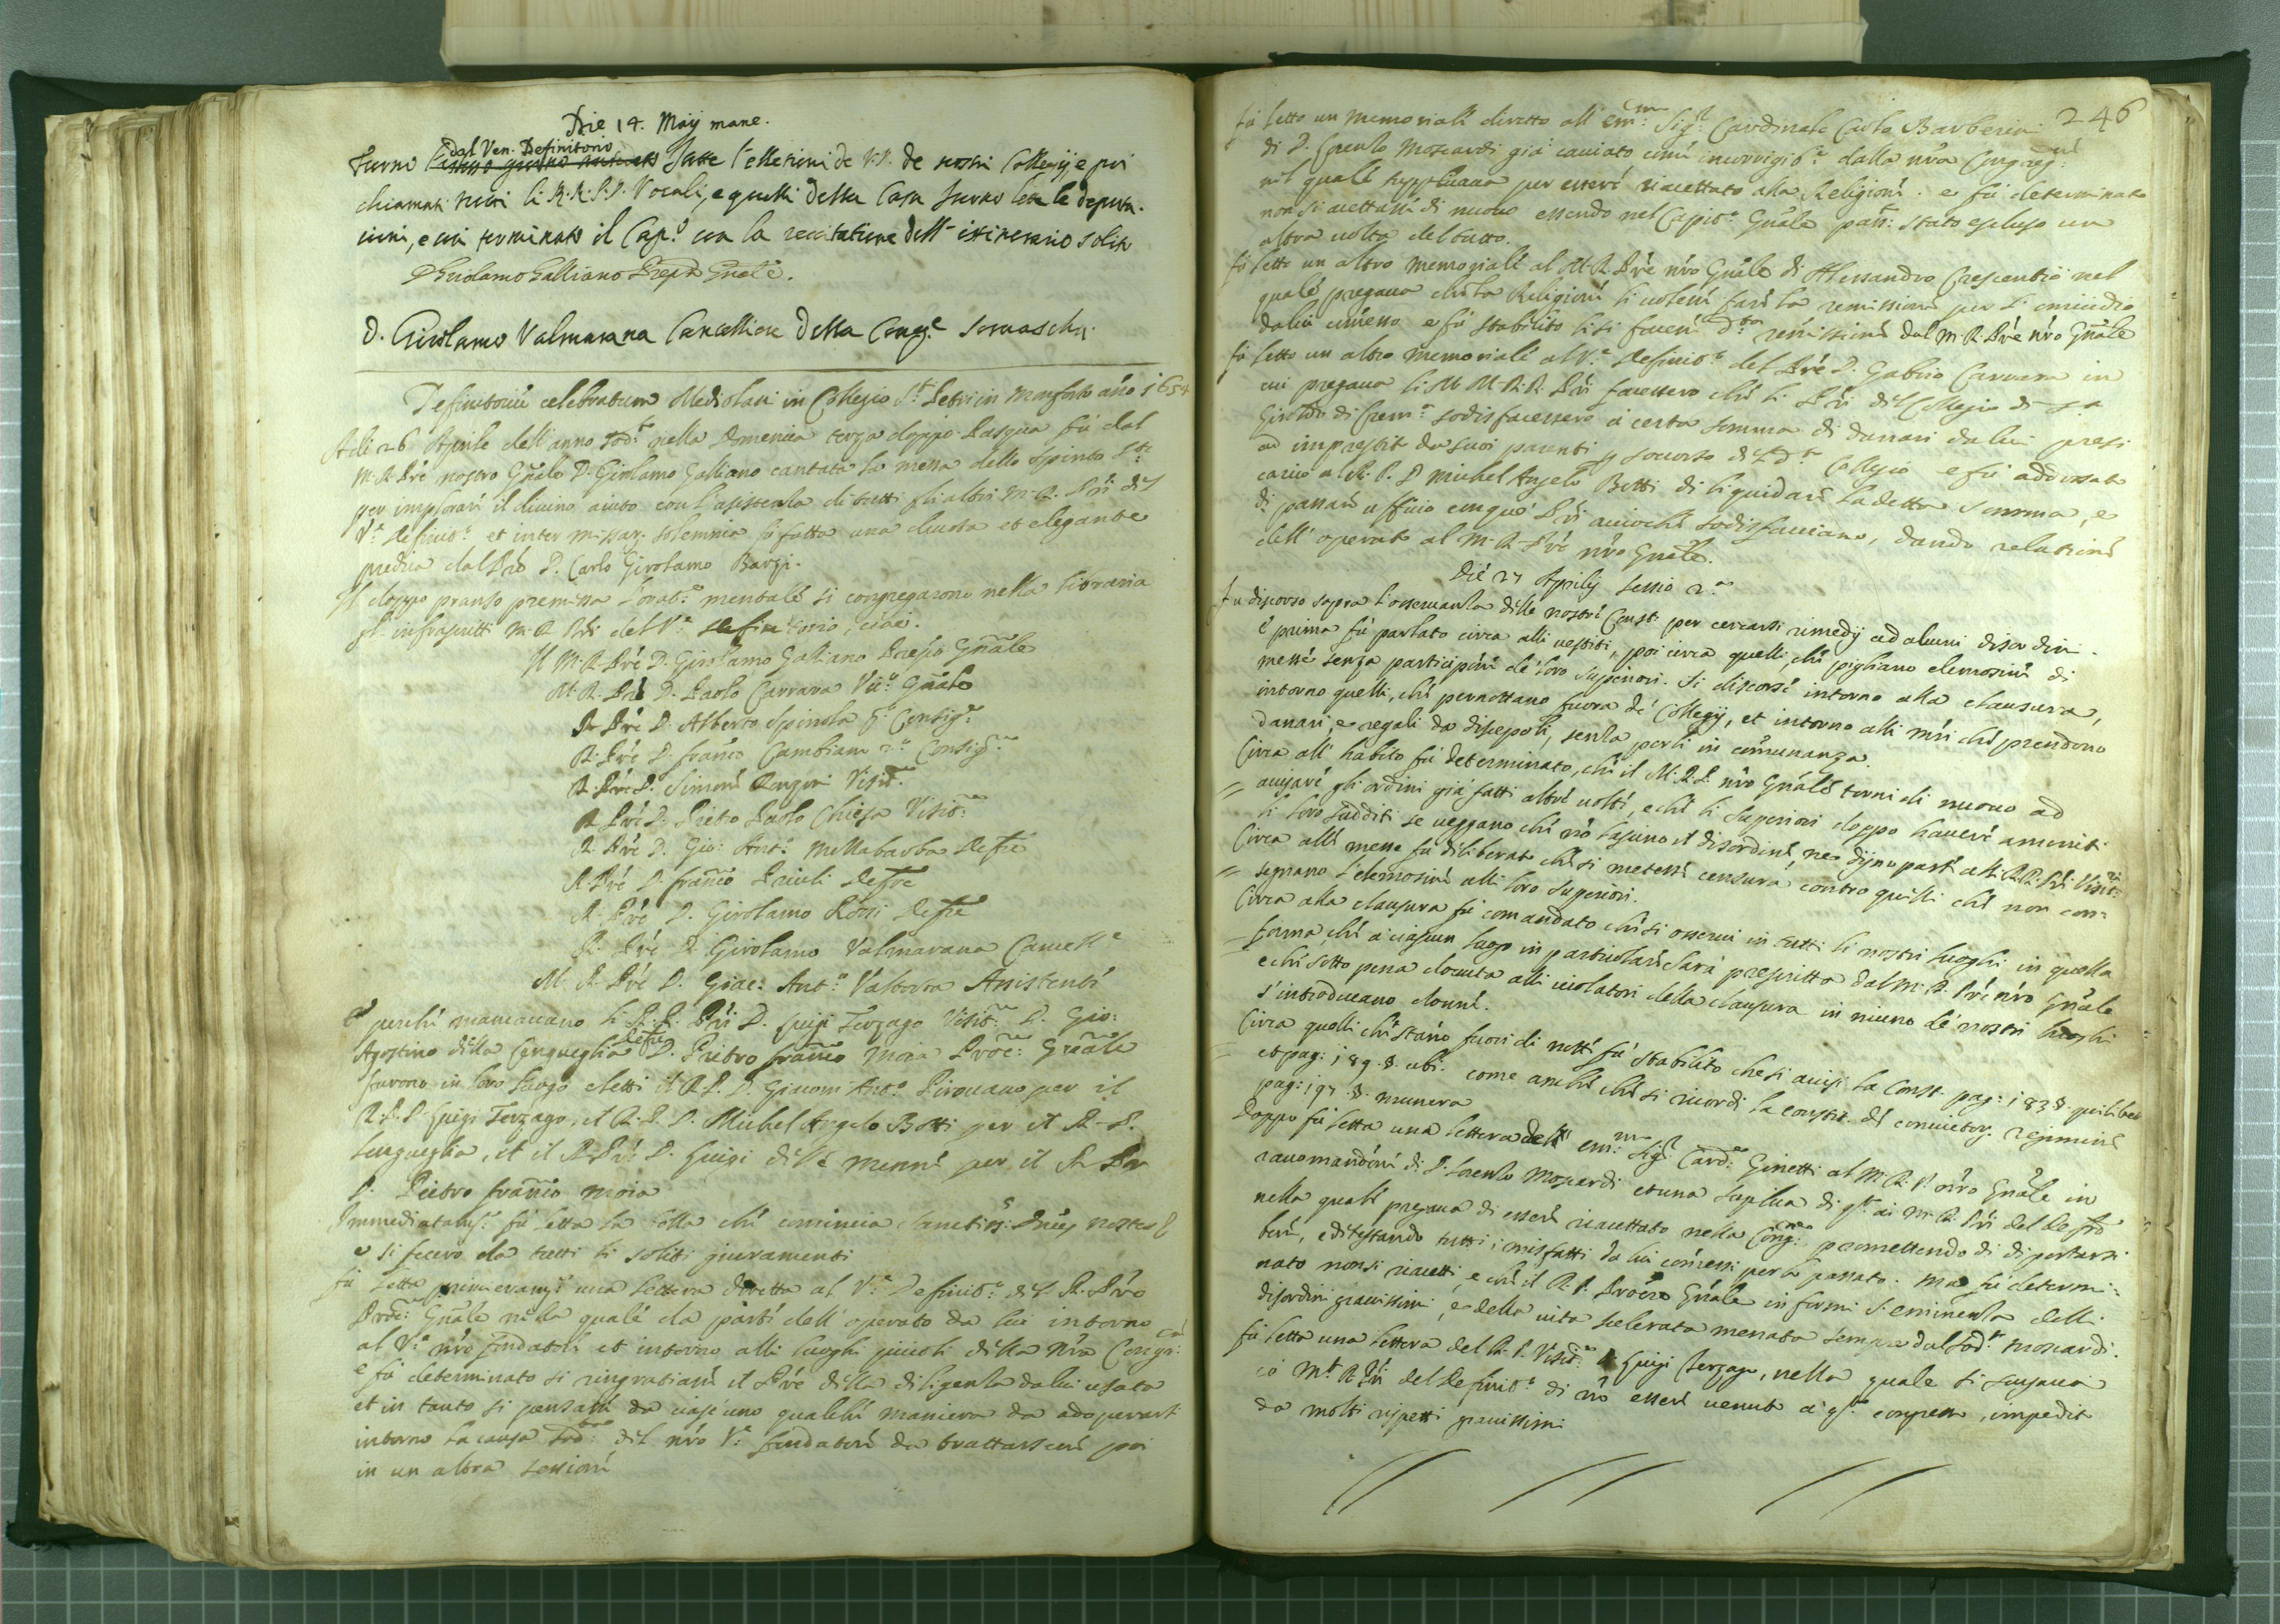 Die 14. Maij mane.
dal Ven. Definitorio
Furno fatte l'elletioni de V.P. de nostri Collegij, e poi
chiamati tutti li R.R.P.P. Vocali, e quelli della Casa furno lette le deputa-
cioni, e cosi terminato il Cap.º con la recitatione dell' itinerario solito
D Girolamo Galliano Prep.to Gnãle.
D. Girolamo Valmarana Cancelliere della Cong.e Somascha
Definitoriũ celebratum Mediolani in Collegio S.ti Petri in Monforto año 1654
Adi 26 Aprile dell' anno sod.º nella Domenica terza doppo Pasqua fú dal
M. R. Prẽ nostro Gñale D. Girolamo Galliano cantata la messa dello Spirito S.to
per implorare il divino aiuto con l'assistenza di tutti gli altri M. R. Pri del
V.e Definit.º et inter missar. solemnia fú fatta una dotta et elegante
predica dal Prẽ D. Carlo Girolamo Bargi.
Il doppo pranso premissa l'orat.ne mentale si congregarono nella libraria
gl' infrascritti M. R. Pri del V.e Definitorio, cioè.
Il M. R. Prẽ D. Girolamo Galliano Prepõ Gñale
M. R. Prẽ D. Paolo Carrara Vic.º Gñale
R. Prẽ D. Alberto Spinola p.º Consig.re
R. Prẽ D. Franco Cambiani 2.º Consig.re
R. Prẽ D. Simone Renzini Visit.re
R. Prẽ D. Pietro Paolo Chiesa Visit.re
R. Prẽ D. Gio: Ant.º Mellabarba Defre
R. Prẽ D. Franco Priuli Defre
R. Prẽ D. Girolamo Rossi Defre
R. Prẽ D. Girolamo Valmarana Cancell.e
M. R. Prẽ D. Giac: Ant.º Valtorta Assistente
E perche mancauano li R. R. Pri D. Luigi Terzago Visit.re D. Gio:
Agostino della Cengueglia Defre D. Pietro Franco Moia Proc.re Gñale
furono in loro luogo eletti il R. P. D. Giacom' Ant.º Pirouano per il
R. P. D. Luigi Terzago, il R. P. D. Michel Angelo Botti per il R. P.
Cengueglia, et il R. Prẽ D. Luigi per il R. Prẽ
D. Pietro Franco Moia
Immediatam.e fú letta la bolla che comincia Sanctiss: Dñus noster &
e si fecero da tutti li soliti giuramenti
fú letta primieram.e una lettera diretta al V.e Definit.º del R. Prẽ
Proc.re Gñale nella quale da parte dell' operato da lui intorno
al V.e nrõ fondatore et intorno alli luoghi piccoli della nrã Congr.ne
e fú determinato si ringratiasse il Prẽ della diligenza da lui usata
et in tanto si pensasse da ciascuno qualche maniera da adoperarsi
intorno la causa sod.ta del nrõ V.e fondatore da trattarsene poi
in un altra sessione
246
fú letto un memoriale diretto all' Em.mo Sig.r Cardinale Carlo Barberini
di D. Lorenzo Moscardi già cacciato come incorrigib.e dalla nrã Congreg.ne
nel quale supplicaua per essere riaccettato alla Religione. e fú determinato
non si accettasse di nuouo essendo nel Capit.º Gñale pass.º stato escluso un
altra uolta del tutto.
fú letto un altro memoriale al M. R. Prẽ nrõ Gñale di Alessandro Crescentio nel
quale pregaua che la Religione li uolesse fare la remissione per l'omicidio
da lui comesso e fú stabilito li si facesse d.ta remissione dal M. R. Prẽ nrõ Gñale
fú letto un altro memoriale al V.e Definit.º del Prẽ D. Gabrio Carrara in
cui pregaua li M M. R. R. Pri facessero che li Pri del Collegio di S.ª
di Crem.ª sodisfacessero à certa somma di danari da lui presi
ad imprestito da suoi parenti p soccorso di d.to Collegio e fú addossato
carico al R. P. D Michel Angelo Botti di liquidare la detta somma, e
di passare ufficio con que' Pri accioche sodisfacciano, dando relatione
dell' operato al M. R. Prẽ nrõ Gñale.
Die 27 Aprilis sessio 2.ª
Fu discorso sopra l'osseruanza delle nostre Const. per cercarsi rimedij ad alcuni disordini.
E prima fú parlato circa alli uestiti, poi circa quelli, che pigliano elemosine di
messe senza participarne de loro superiori. Si discorse intorno alla clausura,
intorno quelli, che pernottano fuora de' Collegij, et intorno alli mri che prendono
danari, e regali da discepoli, senza porli in comunanza.
Circa all' habito fú determinato, che il M. R. P. nrõ Gñale torni di nuouo ad
auisare gli ordini già fatti altre uolte, e che li superiori doppo hauere ammoniti
li loro sudditi se ueggano che nõ lasciano il disordine, ne dijno parte alli R.R. Pri Visit.ri
Circa alle messe fú deliberato che si metesse censura contro quelli che non con-
segnano l'elemosine alli loro superiori.
Circa alla clausura fú comandato che si osserui in tutti li nostri luoghi in quella
forma, che à ciascun luogo in particolare sarà prescritto dal M. R. Prẽ nrõ Gñale
e che sotto pena douuta alli uiolatori della clausura in niuno de' nostri luoghi
s'introducano donne.
Circa quelli che stano fuori di notte fú stabilito che si auisi la Const. pag: 183 §. quilibet
et pag: 189 §. ubi. come anche che si ricordi la constit. de conuictor. regimine
pag: 197 §. munera
Doppo fú letta una lettera dell' Em.mo Sig.r Card.le Ginetti al M. R. P. nrõ Gñale in
racomandõne di D. Lorenzo Moscardi et una suplica di qsti ai M. R. Pri del Defrio
nella quale pregaua di essere riaccettato nella Cong.ne promettendo di diportarsi
bene, e ditestando tutti i misfatti da lui comessi per lo passato. Ma fú determi-
nato non si riaccetti, e che il R. P. Procre Gñale informi S. Eminenza delli
disordini grauissimi, e della uita scelerata menata sempre dal sod.to Moscardi.
fú letta una lettera del R. P. Visit.re Luigi Terzago, nella quale si scusaua
co M.ti R. Pri del Definit.º di nõ essere uenuto a q.to congresso, impedito
da molti rispetti grauissimi